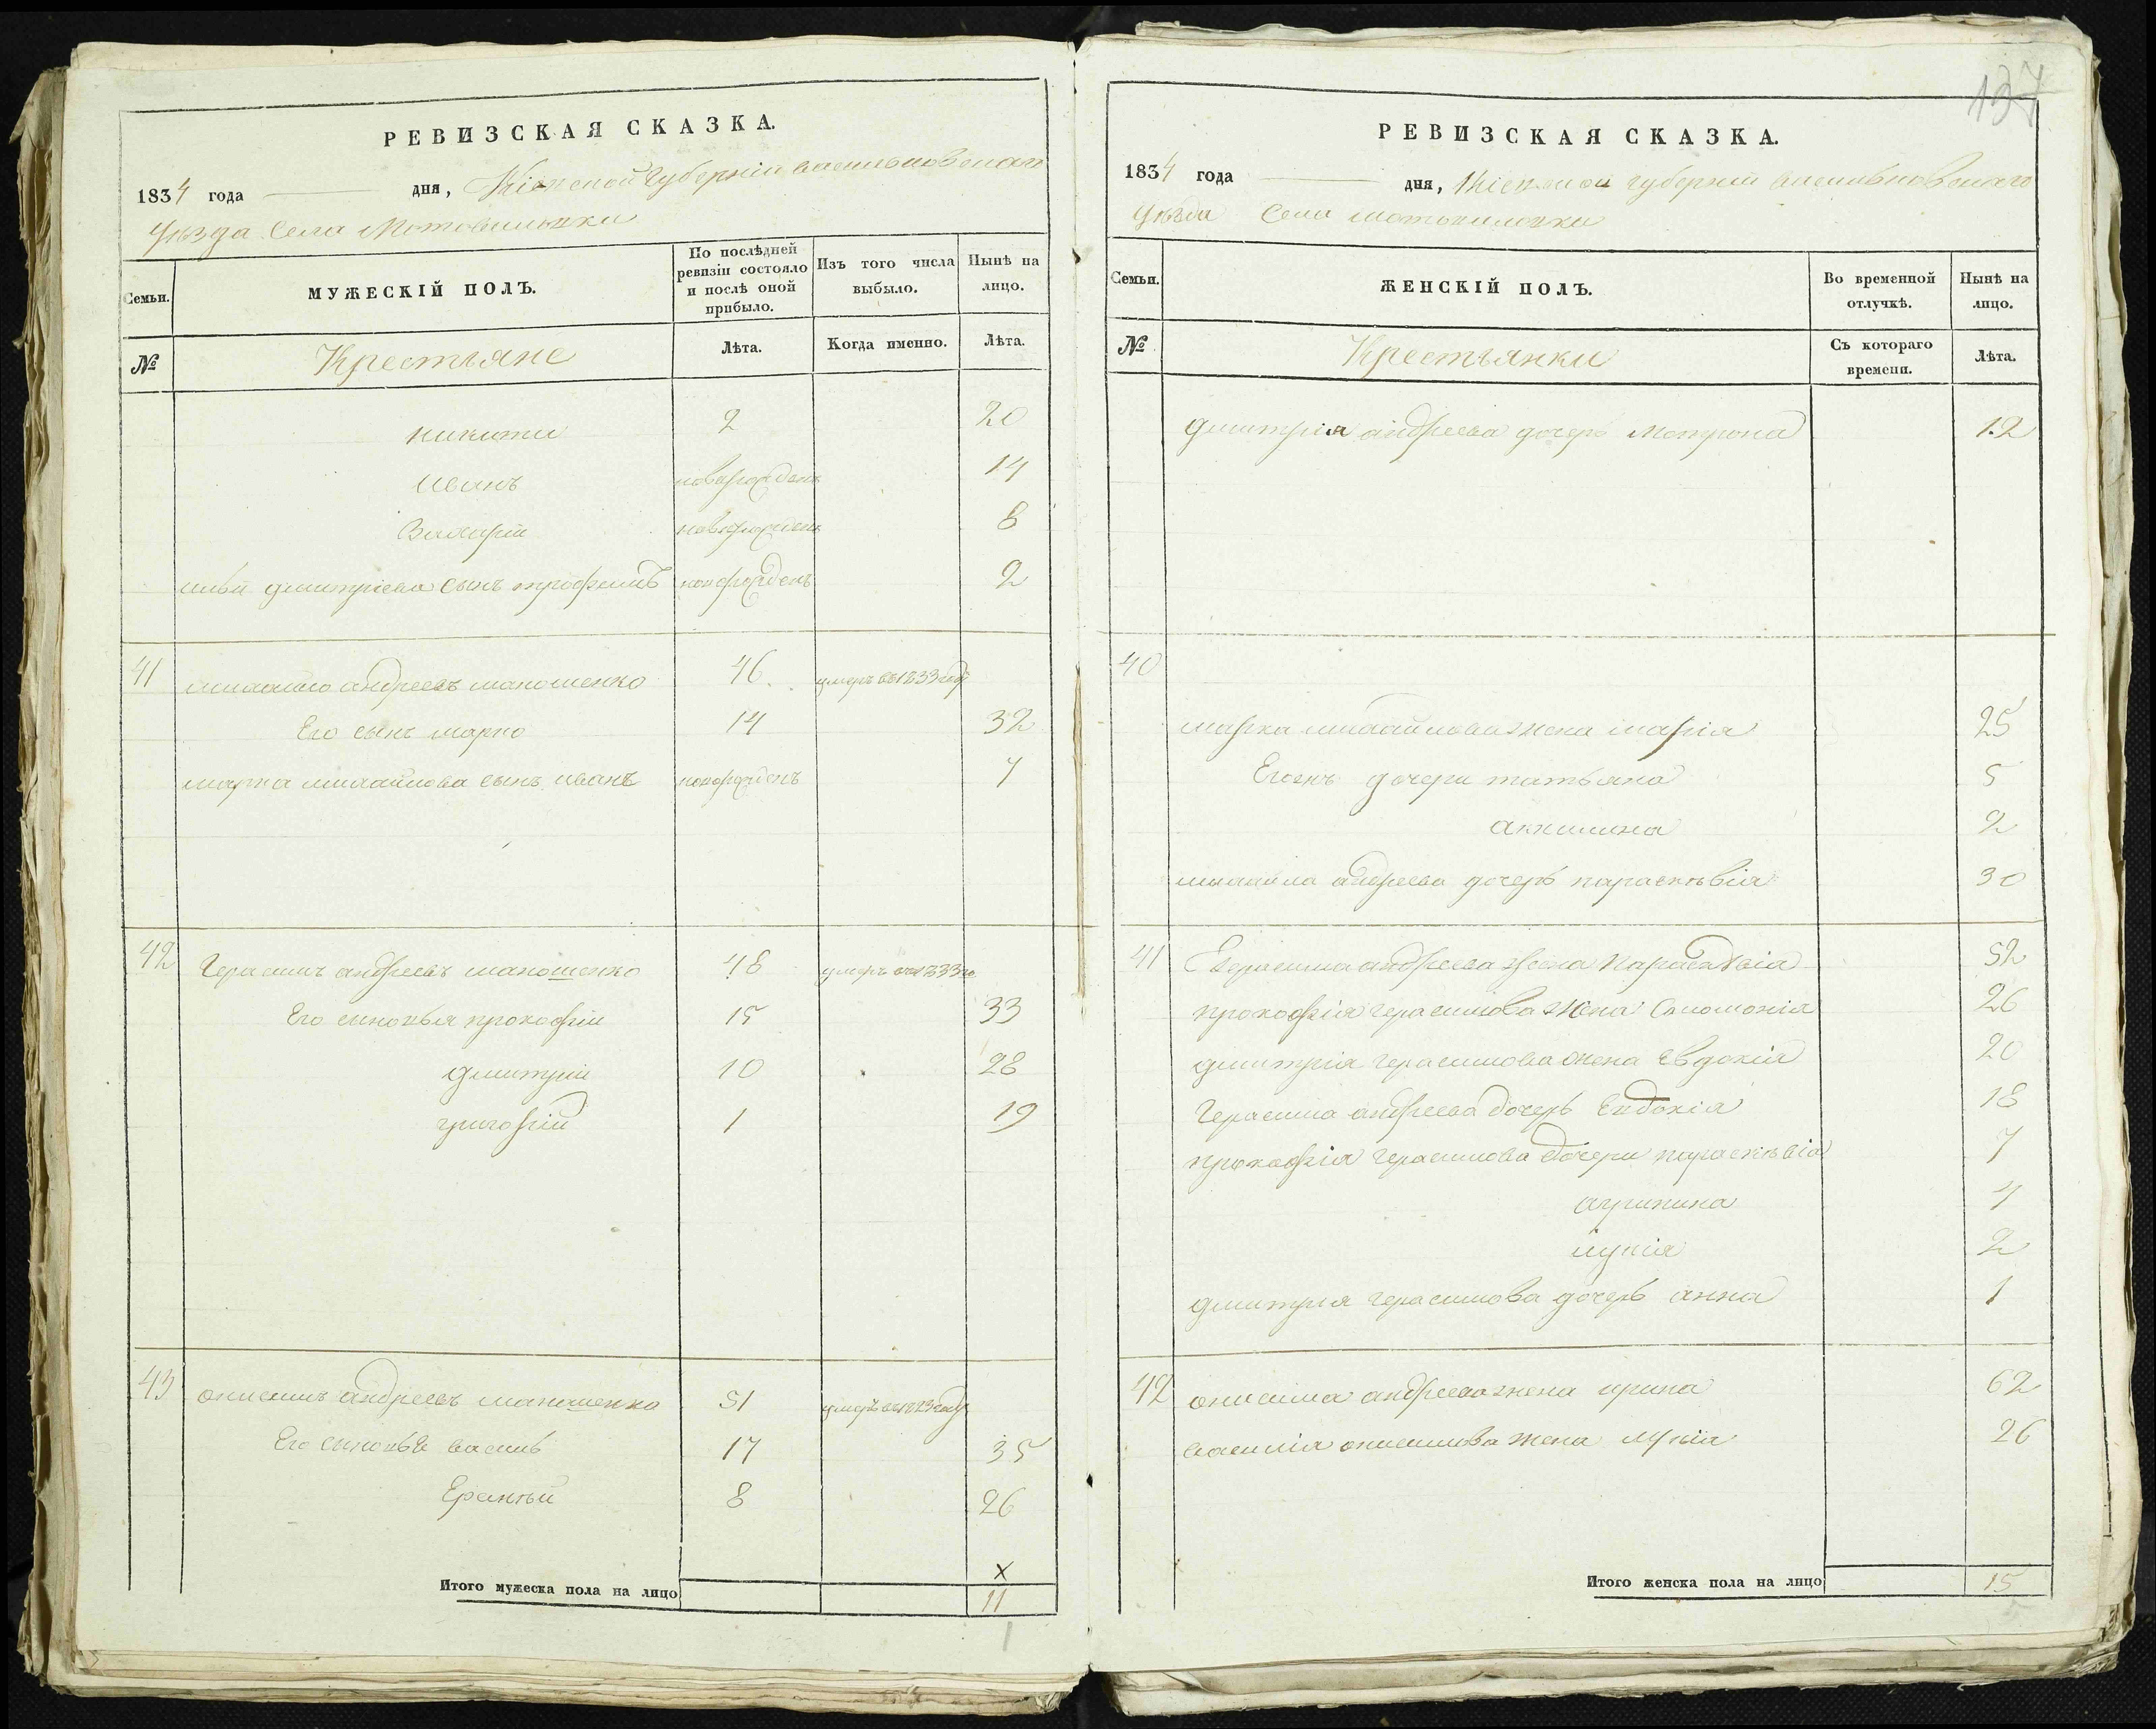 РЕВИЗСКАЯ СКАЗКА.
1834 года дня, Кіевской Губерніи васильковскаго
Уѣзда Села Мотовиловки
Семьи.
МУЖЕСКІЙ ПОЛЪ.
По послѣдней ревизіи состояло и послѣ оной прибыло.
Изъ того числа выбыло.
Нынѣ на лицо.
№
Крестьяне
Лѣта.
Когда именно.
Лѣта.
никита 2 20
Иванъ новорожденъ 14
Валерій новорожденъ 8
дмитріева сынъ трофимъ новорожденъ 2
41 андреевъ 46 умеръ въ 1833 годѣ
Его сынъ марко 14 32
марка михайлова сынъ иванъ новорожденъ 7
42 Герасимъ андреевъ 48 умеръ въ 1833
Его синовья прокофій 15 33
дмитрій 10 28
григорій 1 19
43 онисимъ андреевъ 51 умеръ въ 1829 годѣ
Его сыновье василь 17 35
8 26
х
Итого мужеска пола на лицо 11
137
РЕВИЗСКАЯ СКАЗКА.
1834 года дня, Кіевской губерніи васильковскаго
Уѣзда Села мотовиловки
Семьи.
ЖЕНСКІЙ ПОЛЪ.
Во временной отлучкѣ.
Нынѣ на лицо.
№
Крестьянки
Съ котораго времени.
Лѣта.
дмитрія андреева дочерь Мотрона 12
40
марка михайлова жена марія 25
дочери татьяна 5
акилина 2
михаила андреева дочерь параскѣвія 30
41 Герасима андреева жена Параскѣвія 52
прокофія герасимова жена Соломонія 26
дмитрія герасимова жена Евдокія 20
Герасима андреева дочерь Евдокія 18
прокофія герасимова дочери параскѣвія 7
агрипина 4
лукія 2
дмитрія герасимова дочерь анна 1
42 онисима андреева жена ирина 62
василія онисимова жена лукія 26
Итого женска пола на лицо 15